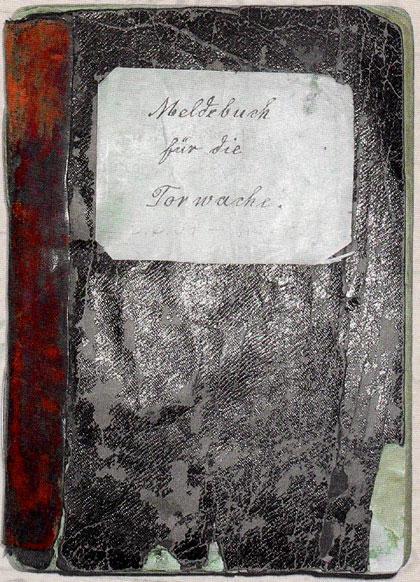 Meldebuch
für die
Torwache.